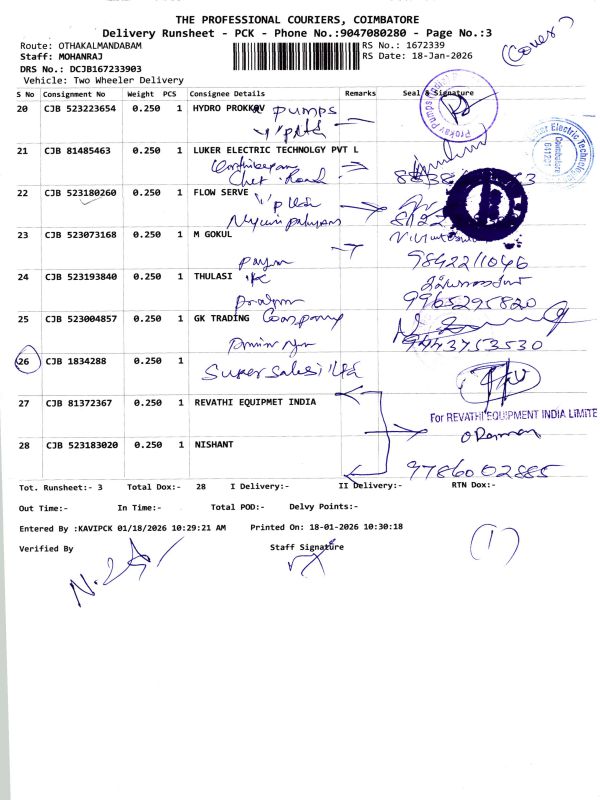 THE PROFESSIONAL COURIERS, COIMBATORE
Delivery Runsheet - PCK - Phone No.:9047080280 - Page No.:3
(Cover)
Route: OTHAKALMANDABAM
RS No.: 1672339
Staff: MOHANRAJ
RS Date: 18-Jan-2026
DRS No.: DCJB167233903
Vehicle: Two Wheeler Delivery
S No Consignment No Weight PCS Consignee Details Remarks Seal & Signature
20 CJB 523223654 0.250 1 HYDRO PROKKOV pumps
21 CJB 81485463 0.250 1 LUKER ELECTRIC TECHNOLGY PVT L
Chet. Road
22 CJB 523180260 0.250 1 FLOW SERVE
23 CJB 523073168 0.250 1 M GOKUL
9842211046
24 CJB 523193840 0.250 1 THULASI
9965295820
25 CJB 523004857 0.250 1 GK TRADING Company
9443753530
26 CJB 1834288 0.250 1
Super Sales
27 CJB 81372367 0.250 1 REVATHI EQUIPMET INDIA
For REVATHI EQUIPMENT INDIA LIMITE
28 CJB 523183020 0.250 1 NISHANT
9786002885
Tot. Runsheet:- 3 Total Dox:- 28 I Delivery:- II Delivery:- RTN Dox:-
Out Time:- In Time:- Total POD:- Delvy Points:-
Entered By :KAVIPCK 01/18/2026 10:29:21 AM Printed On: 18-01-2026 10:30:18
Verified By Staff Signature
(1)